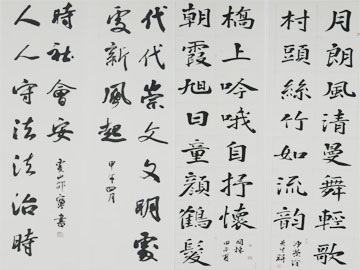 月朗風清曼舞輕歌
村頭絲竹如流韵
橋上吟哦自抒懷
朝霞旭日童顏鶴髮
代代崇文文明處
處新風起
甲午四月
人人守法法治時
時社會安